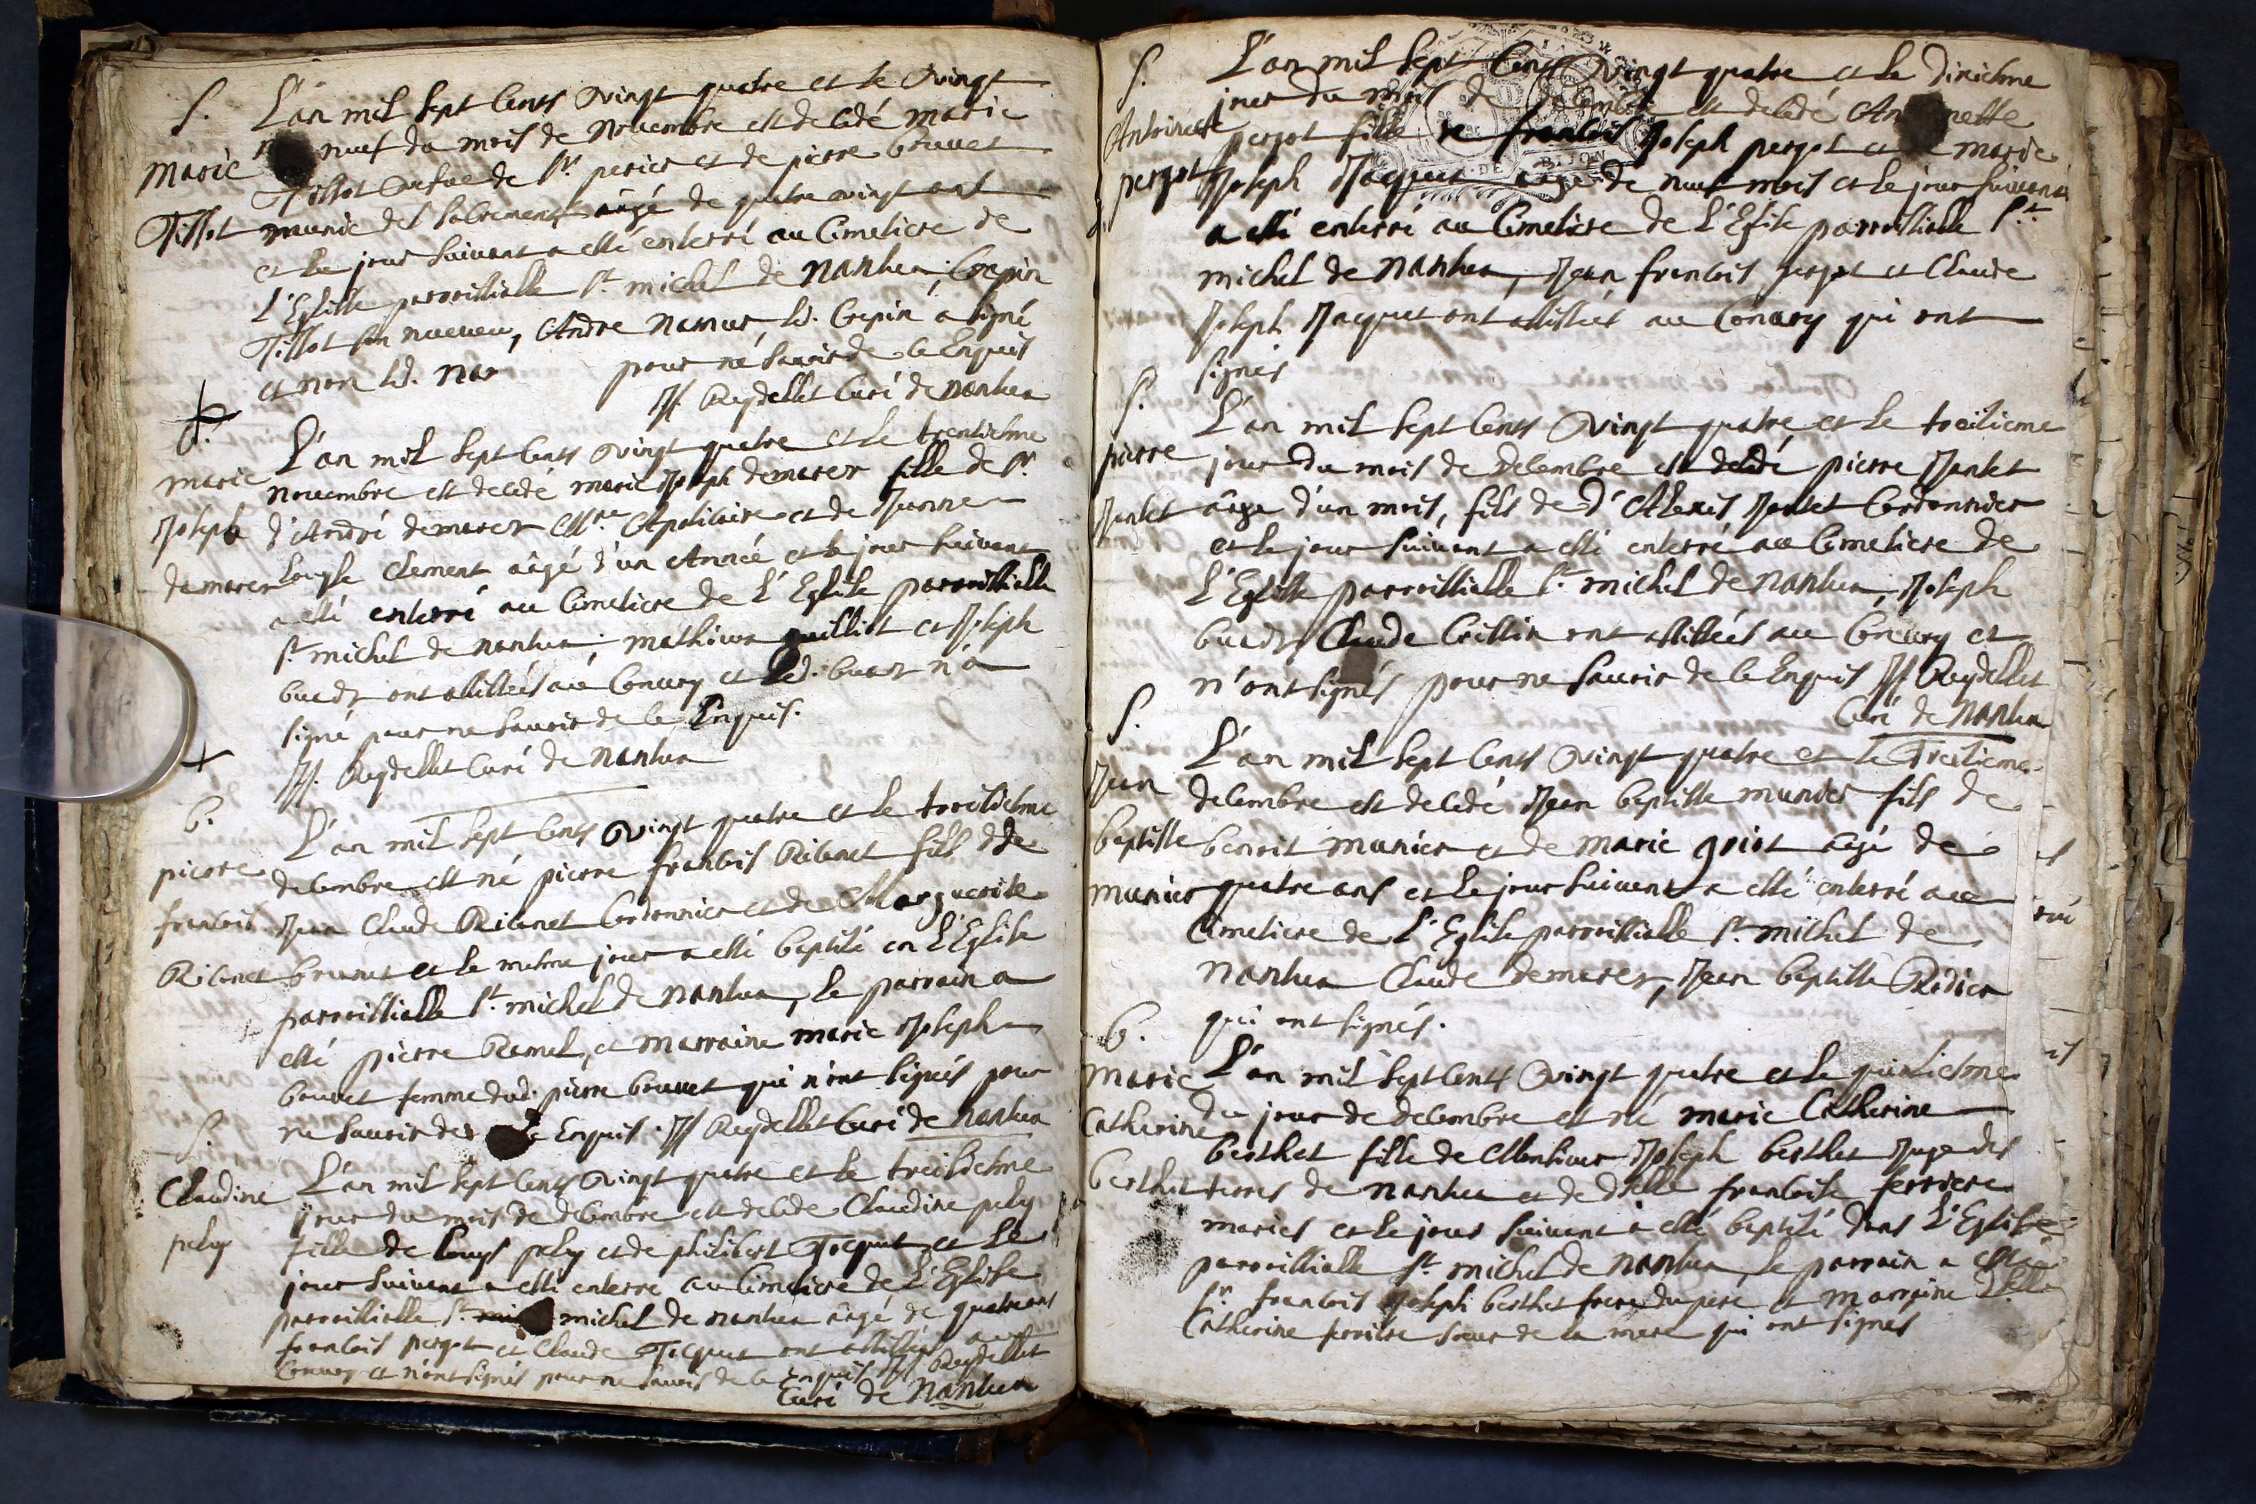 S.
L'an mil sept Cents vingt quatre et le vingt
nuef du mois de Novembre est decedé marie
marie
Tissot
Tissot vefue de Sr. perier et de pierre brunet
munie des sacrements aagé de quatre vingt ans
et le jour suivant a esté enterré au Cimetiere de
L'Eglise parroissialle St. michel de Nantua, Crepin
Tissot son nueveu, Andre led. Crepin a signé
et non led. pour ne sauoir de ce Enquis
JJ. Reydellet Curé de nantua
S.
marie
Joseph
demarer
L'an mil sept Cents vingt quatre et le trentiesme
nouembre est decedé marie Joseph demarer fille de Sr.
d'André demarer Mtre. Apoticaire et de Jeanne
Louyse Clement aagé d'un Année et le jour suivant
a esté enterré au Cimetiere de L'Eglise parroissialle
St. michel de nantua; mathieu guilliot et Joseph
ont assistés au Convoy et led. n'a
signé pour ne sauoir de ce Enquis.
JJ. Reydellet Curé de Nantua
b.
pierre
francois
Ribanet
L'an mil sept Cents vingt quatre et le troisiesme
decembre est né pierre francois Ribanet fils de
Jean Claude Ribanet Cordonnier et de Marguerite
brunet et le mesme jour a esté baptisé en L'Eglise
parroissialle St. michel de Nantua, le parrain a
esté pierre Ramel, et marraine marie Joseph
bouuet femme dud. pierre brunet qui n'ont signés pour
ne sauoir de ce Enquis. JJ Reydellet Curé de Nantua
S.
Claudine
pely
L'an mil sept Cents vingt quatre et le treisiesme
jour du mois de decembre est decede Claudine pely
fille de Louys pely et de philibert Jacquet et Le
jour suivant a esté enterre au Cimetiere de L'Eglise
parroissialle St. michel de nantua aagé de quatre ans
francois pergot et Claude Jacquet ont assistés au
Convoy et n'ont signés pour ne sauoir de ce Enquis JJ Reydellet
Curé de Nantua
S.
Antoinette
pergot
L'an mil sept Cents vingt quatre et le dixiesme
jour du mois de decembre est decedé Antoinette
pergot fille de francois Joseph pergot et de marie
Joseph Jacquet aagé de nuef mois et le jour suivant
a esté enterré au Cimetiere de L'Eglise parroissialle St.
michel de Nantua, Jean francois pergot et Claude
Joseph Jacquet ont assistés au Convoy qui ont
signés
S.
pierre
Jantet
L'an mil sept Cents vingt quatre et le treisieme
jour du mois de decembre est decedé pierre Jantet
aage d'un mois, fils de d'Alexis Jantet Cordonnier
et le jour suivant a esté enterré au Cimetiere de
L'Eglise parroissialle St. michel de Nantua, Joseph
Claude Crittin ont assistés au Convoy et
n'ont signés pour ne sauoir de ce Enquis JJ Reydellet
Curé de Nantua
S.
Jean
baptiste
munier
L'an mil sept Cents vingt quatre et le Treisieme
decembre est decedé Jean baptiste munier fils de
benoit munier et de marie griot aagé de
quatre ans et le jour suivant a esté enterré au
Cimetiere de L'Eglise parroissialle St. michel de
Nantua Claude demarer, Jean baptiste Ridier
qui ont signés.
b.
marie
Catherine
berthet
L'an mil sept Cents vingt quatre et le quinziesme
du jour de decembre est né marie Catherine
berthet fille de Monsieur Joseph berthet Juge des
terres de Nantua et de dselle francoise ferriere
mariés et le jour suivant a esté baptisé dans L'Eglise
parroissialle St. michel de Nantua, le parrain a esté
Sr. francois Joseph berthet frere du pere et marraine dselle
Catherine ferriere soeur de la mere qui ont signés